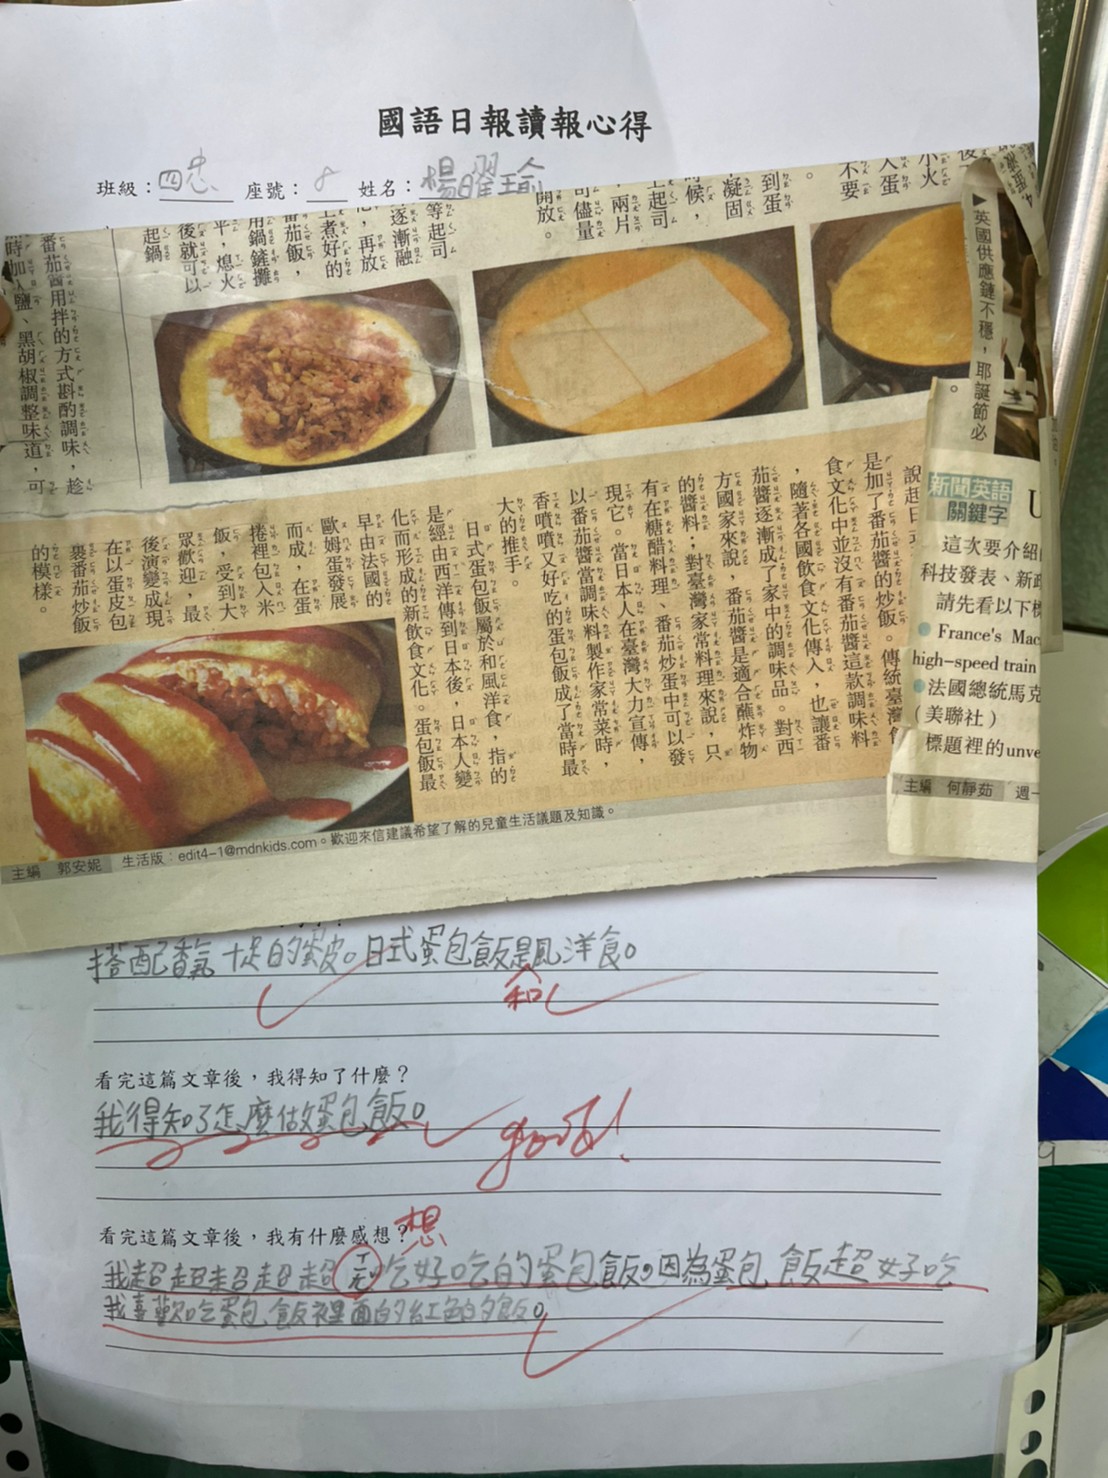 國語日報讀報心得
班級：四忠 座號：8 姓名：楊曜瑜
後
小火
人蛋
不要
到蛋
凝固
時候，
上起司
，兩片
司儘量
開放。
等起司
逐漸融
，再放
上煮好的
番茄飯，
用鍋鏟攤
平，熄火
後就可以
起鍋
番茄醬用拌的方式斟酌調味，趁
時加入鹽、黑胡椒調整味道，可
▶英國供應鏈不穩，耶誕節必
說起日式
是加了番茄醬的炒飯。傳統臺灣
食文化中並沒有番茄醬這款調味料
，隨著各國飲食文化傳入，也讓番
茄醬逐漸成了家中的調味品。對西
方國家來說，番茄醬是適合蘸炸物
的醬料；對臺灣家常料理來說，只
有在糖醋料理、番茄炒蛋中可以發
現它。當日本人在臺灣大力宣傳，
以番茄醬當調味料製作家常菜時，
香噴噴又好吃的蛋包飯成了當時最
大的推手。
日式蛋包飯屬於和風洋食，指的
是經由西洋傳到日本後，日本人變
化而形成的新飲食文化。蛋包飯最
早由法國的
歐姆蛋發展
而成，在蛋
捲裡包入米
飯，受到大
眾歡迎，最
後演變成現
在以蛋皮包
裹番茄炒飯
的模樣。
新聞英語
關鍵字
U
這次要介紹
科技發表、新
請先看以下標
France's Mac
high-speed train
法國總統馬克
（美聯社）
標題裡的unve
主編 何靜茹 週一
主編 郭安妮 生活版：edit4-1@mdnkids.com。歡迎來信建議希望了解的兒童生活議題及知識。
搭配香氣十足的蛋皮。日式蛋包飯是風洋食。
和
看完這篇文章後，我得知了什麼？
我得知了怎麼做蛋包飯。
good!
看完這篇文章後，我有什麼感想？
想
我超超超超超ㄒㄧㄤˇ吃好吃的蛋包飯。因為蛋包飯超好吃
我喜歡吃蛋包飯裡面的紅色的飯。